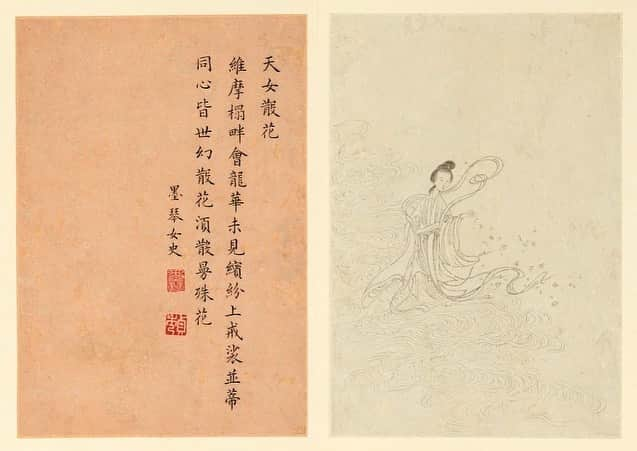 天女散花
維摩榻畔會龍華未見繽紛上戒裟並蒂
同心皆世幻散花湏散曼殊花
墨琴女史